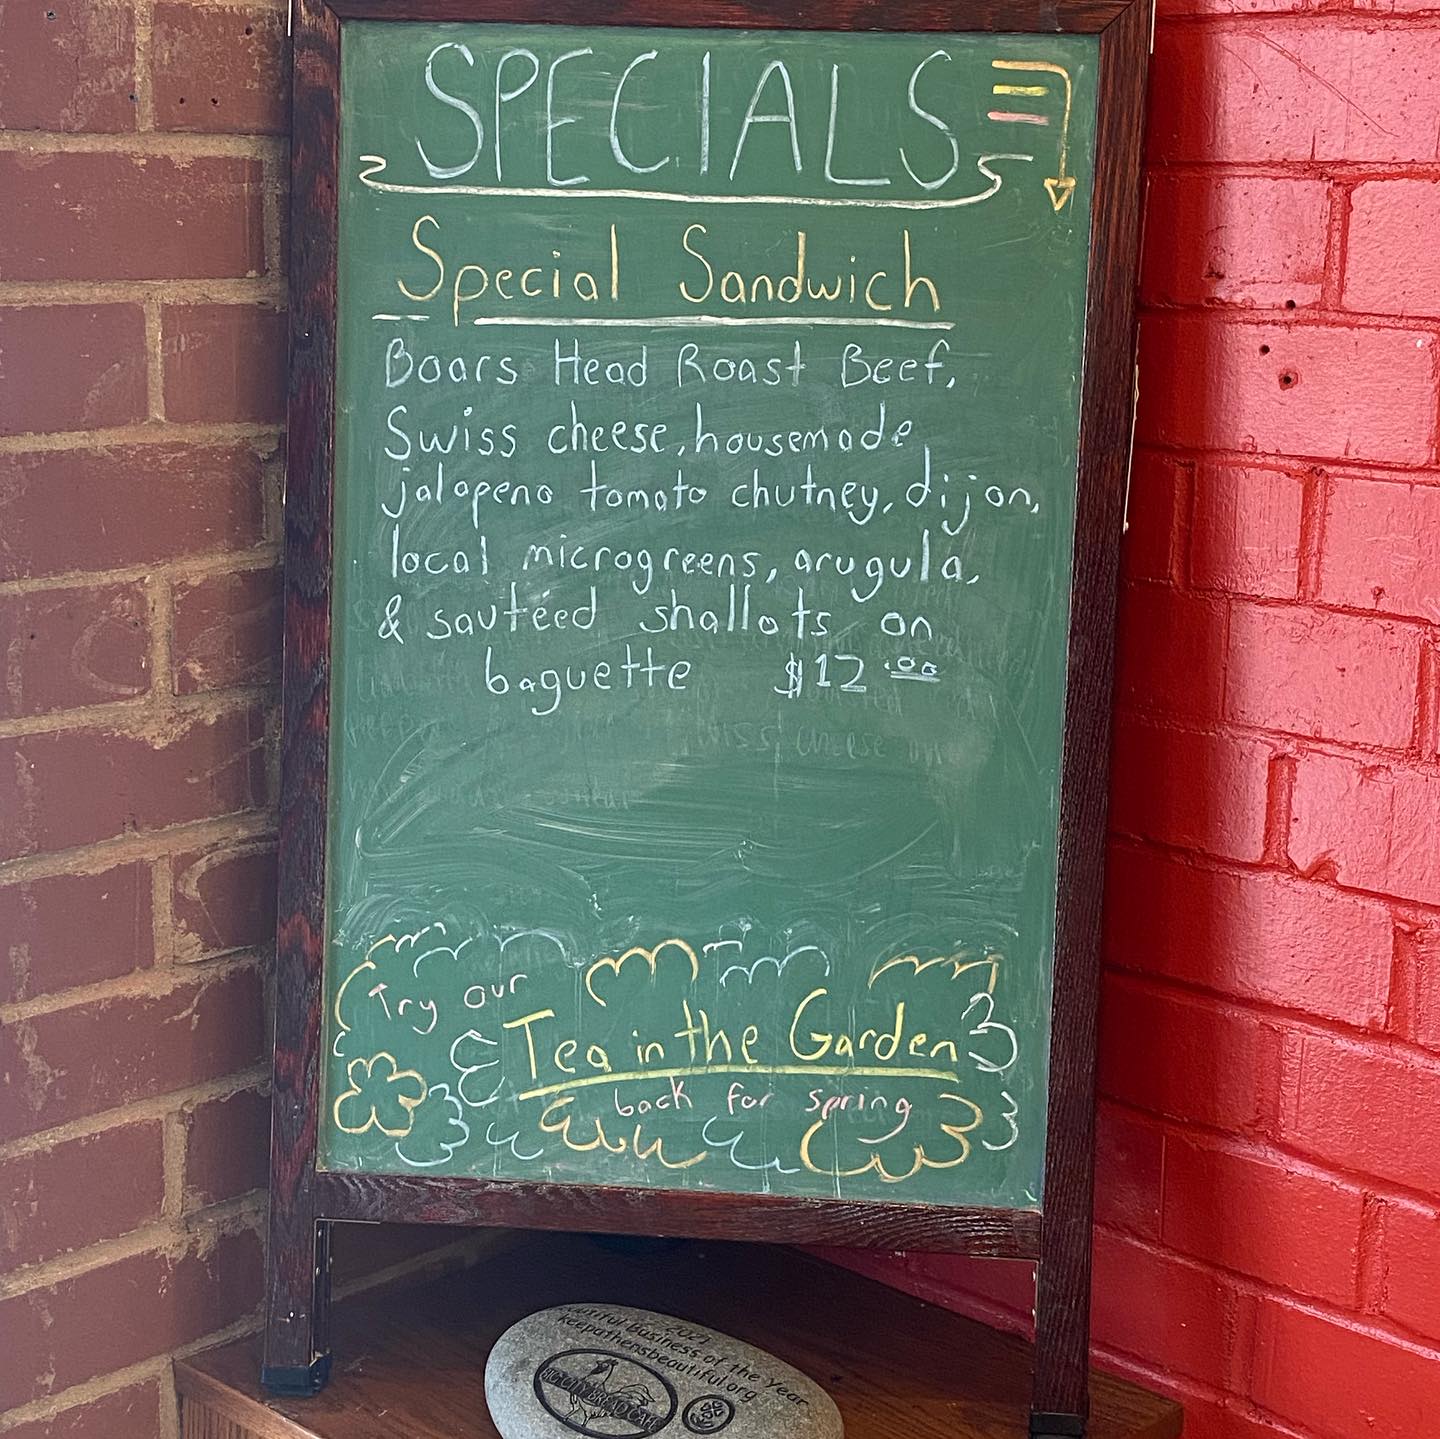 SPECIALS
Special Sandwich
Boars Head Roast Beef,
Swiss cheese, housemade
jalapeno tomato chutney, dijon,
local microgreens, arugula,
& sautéed shallots on
baguette $12.00
Try our
Tea in the Garden
back for spring
2021
Business of the Year
keepathensbeautiful.org
BREAD CAFE